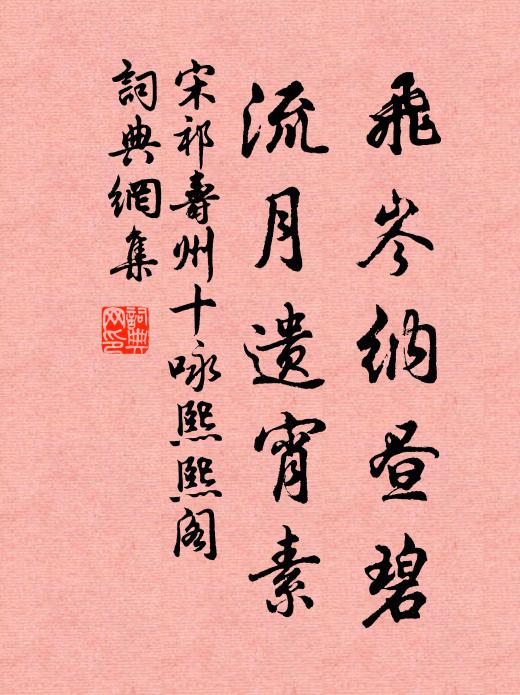 飛岑納昼碧
流月遗宵素
宋祁壽州十咏熙熙阁
詞典網集
詞典网印